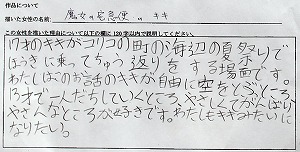 作品について
描いた女性の名前: 魔女の宅急便 の キキ
この女性を描いた理由について以下の欄に120字以内で説明してください。
17才のキキがコリコの町の海辺の夏祭りで
ほうきに乗ってちゅう返りをする場面です。
わたしはこのお話のキキが自由に空をとぶところ、
13才で一人だちしていくところ、やさしくてがんばり
やさんなところが好きです。わたしもキキみたいに
なりたい。